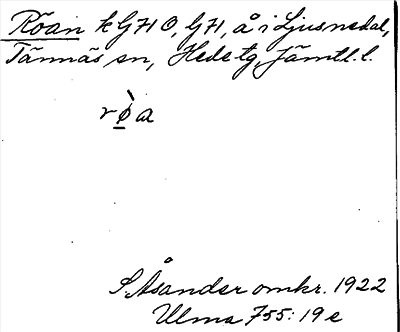 Röan k G71 O, G71, å i Ljusnedal,
Tännäs sn, Hede tg, Jämtl. l.
rø̀a
S. Åsander omkr. 1922
Ulma 755: 19 e